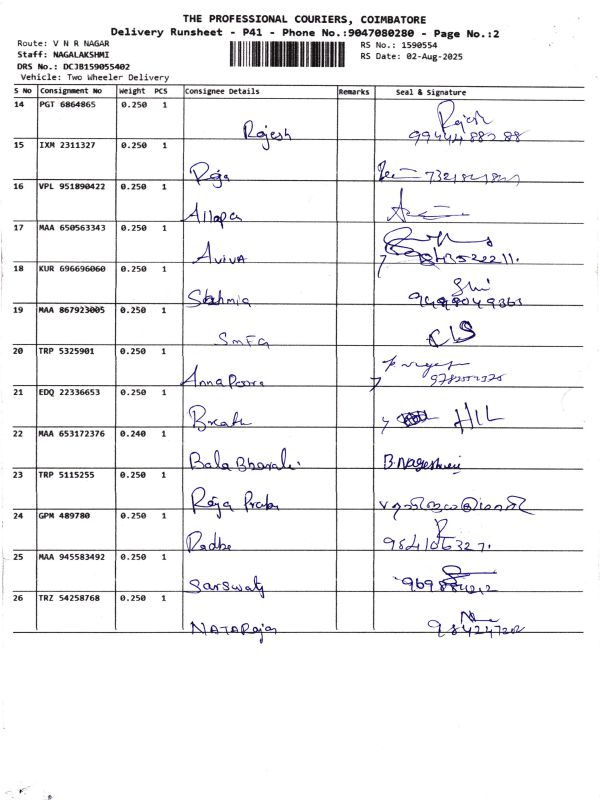 THE PROFESSIONAL COURIERS, COIMBATORE
Delivery Runsheet - P41 - Phone No.:9047080280 - Page No.:2
Route: V N R NAGAR
Staff: NAGALAKSHMI
DRS No.: DCJB159055402
Vehicle: Two Wheeler Delivery
RS No.: 1590554
RS Date: 02-Aug-2025
S No Consignment No Weight PCS Consignee Details Remarks Seal & Signature
14 PGT 6864865 0.250 1 Rajesh Rajesh
15 IXM 2311327 0.250 1 Roja
16 VPL 951890422 0.250 1
17 MAA 650563343 0.250 1 AVIVA
18 KUR 696696060 0.250 1
19 MAA 867923005 0.250 1
20 TRP 5325901 0.250 1 Annapoora
21 EDQ 22336653 0.250 1 HIL
22 MAA 653172376 0.240 1 Bala B.Nageshwari
23 TRP 5115255 0.250 1 Raja
24 GPM 489780 0.250 1 Radha
25 MAA 945583492 0.250 1 Sarswaty
26 TRZ 54258768 0.250 1 NATARajan